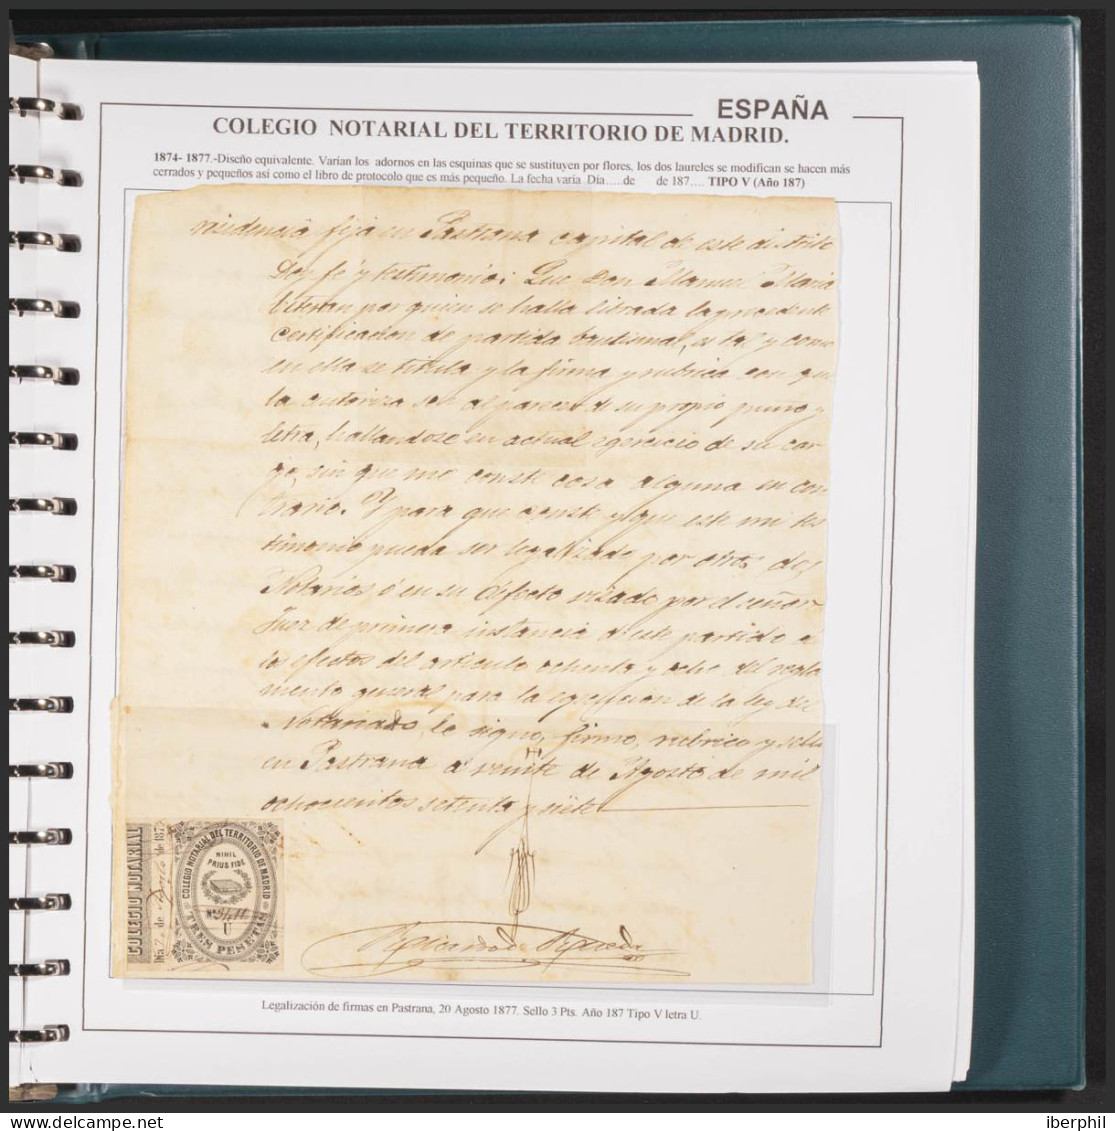 ESPAÑA
COLEGIO NOTARIAL DEL TERRITORIO DE MADRID.
1874- 1877.-Diseño equivalente. Varían los adornos en las esquinas que se sustituyen por flores, los dos laureles se modifican se hacen más
cerrados y pequeños así como el libro de protocolo que es más pequeño. La fecha varía Día.....de de 187.... TIPO V (Año 187)
residencia fija en Pastrana capital de este distrito
Doy fé y testimonio: Que Don Manuel Maria
por quien se halla librada la precedente
certificacion de partida bautismal, es tal y como
en ella se titula y la firma y rubrica con que
la autoriza ser al parecer de su propio puño y
letra, hallandose en actual egercicio de su car-
go, sin que me conste cosa alguna en con-
trario. Y para que conste y que este mi tes-
timonio pueda ser legalizado por otros dos
Notarios ó en su defecto visado por el señor
Juez de primera instancia de este partido á
los efectos del articulo ochenta y ocho del regla-
mento general para la egecucion de la ley del
Notariado, le signo, firmo, rubrico y sello
en Pastrana á veinte de Agosto de mil
ochocientos setenta y siete
COLEGIO NOTARIAL
Día de de 187
COLEGIO NOTARIAL DEL TERRITORIO DE MADRID
NIHIL
PRIUS FIDE
Nº
U
TRES PESETAS
Ricardo de
Legalización de firmas en Pastrana, 20 Agosto 1877. Sello 3 Pts. Año 187 Tipo V letra U.
iberphil